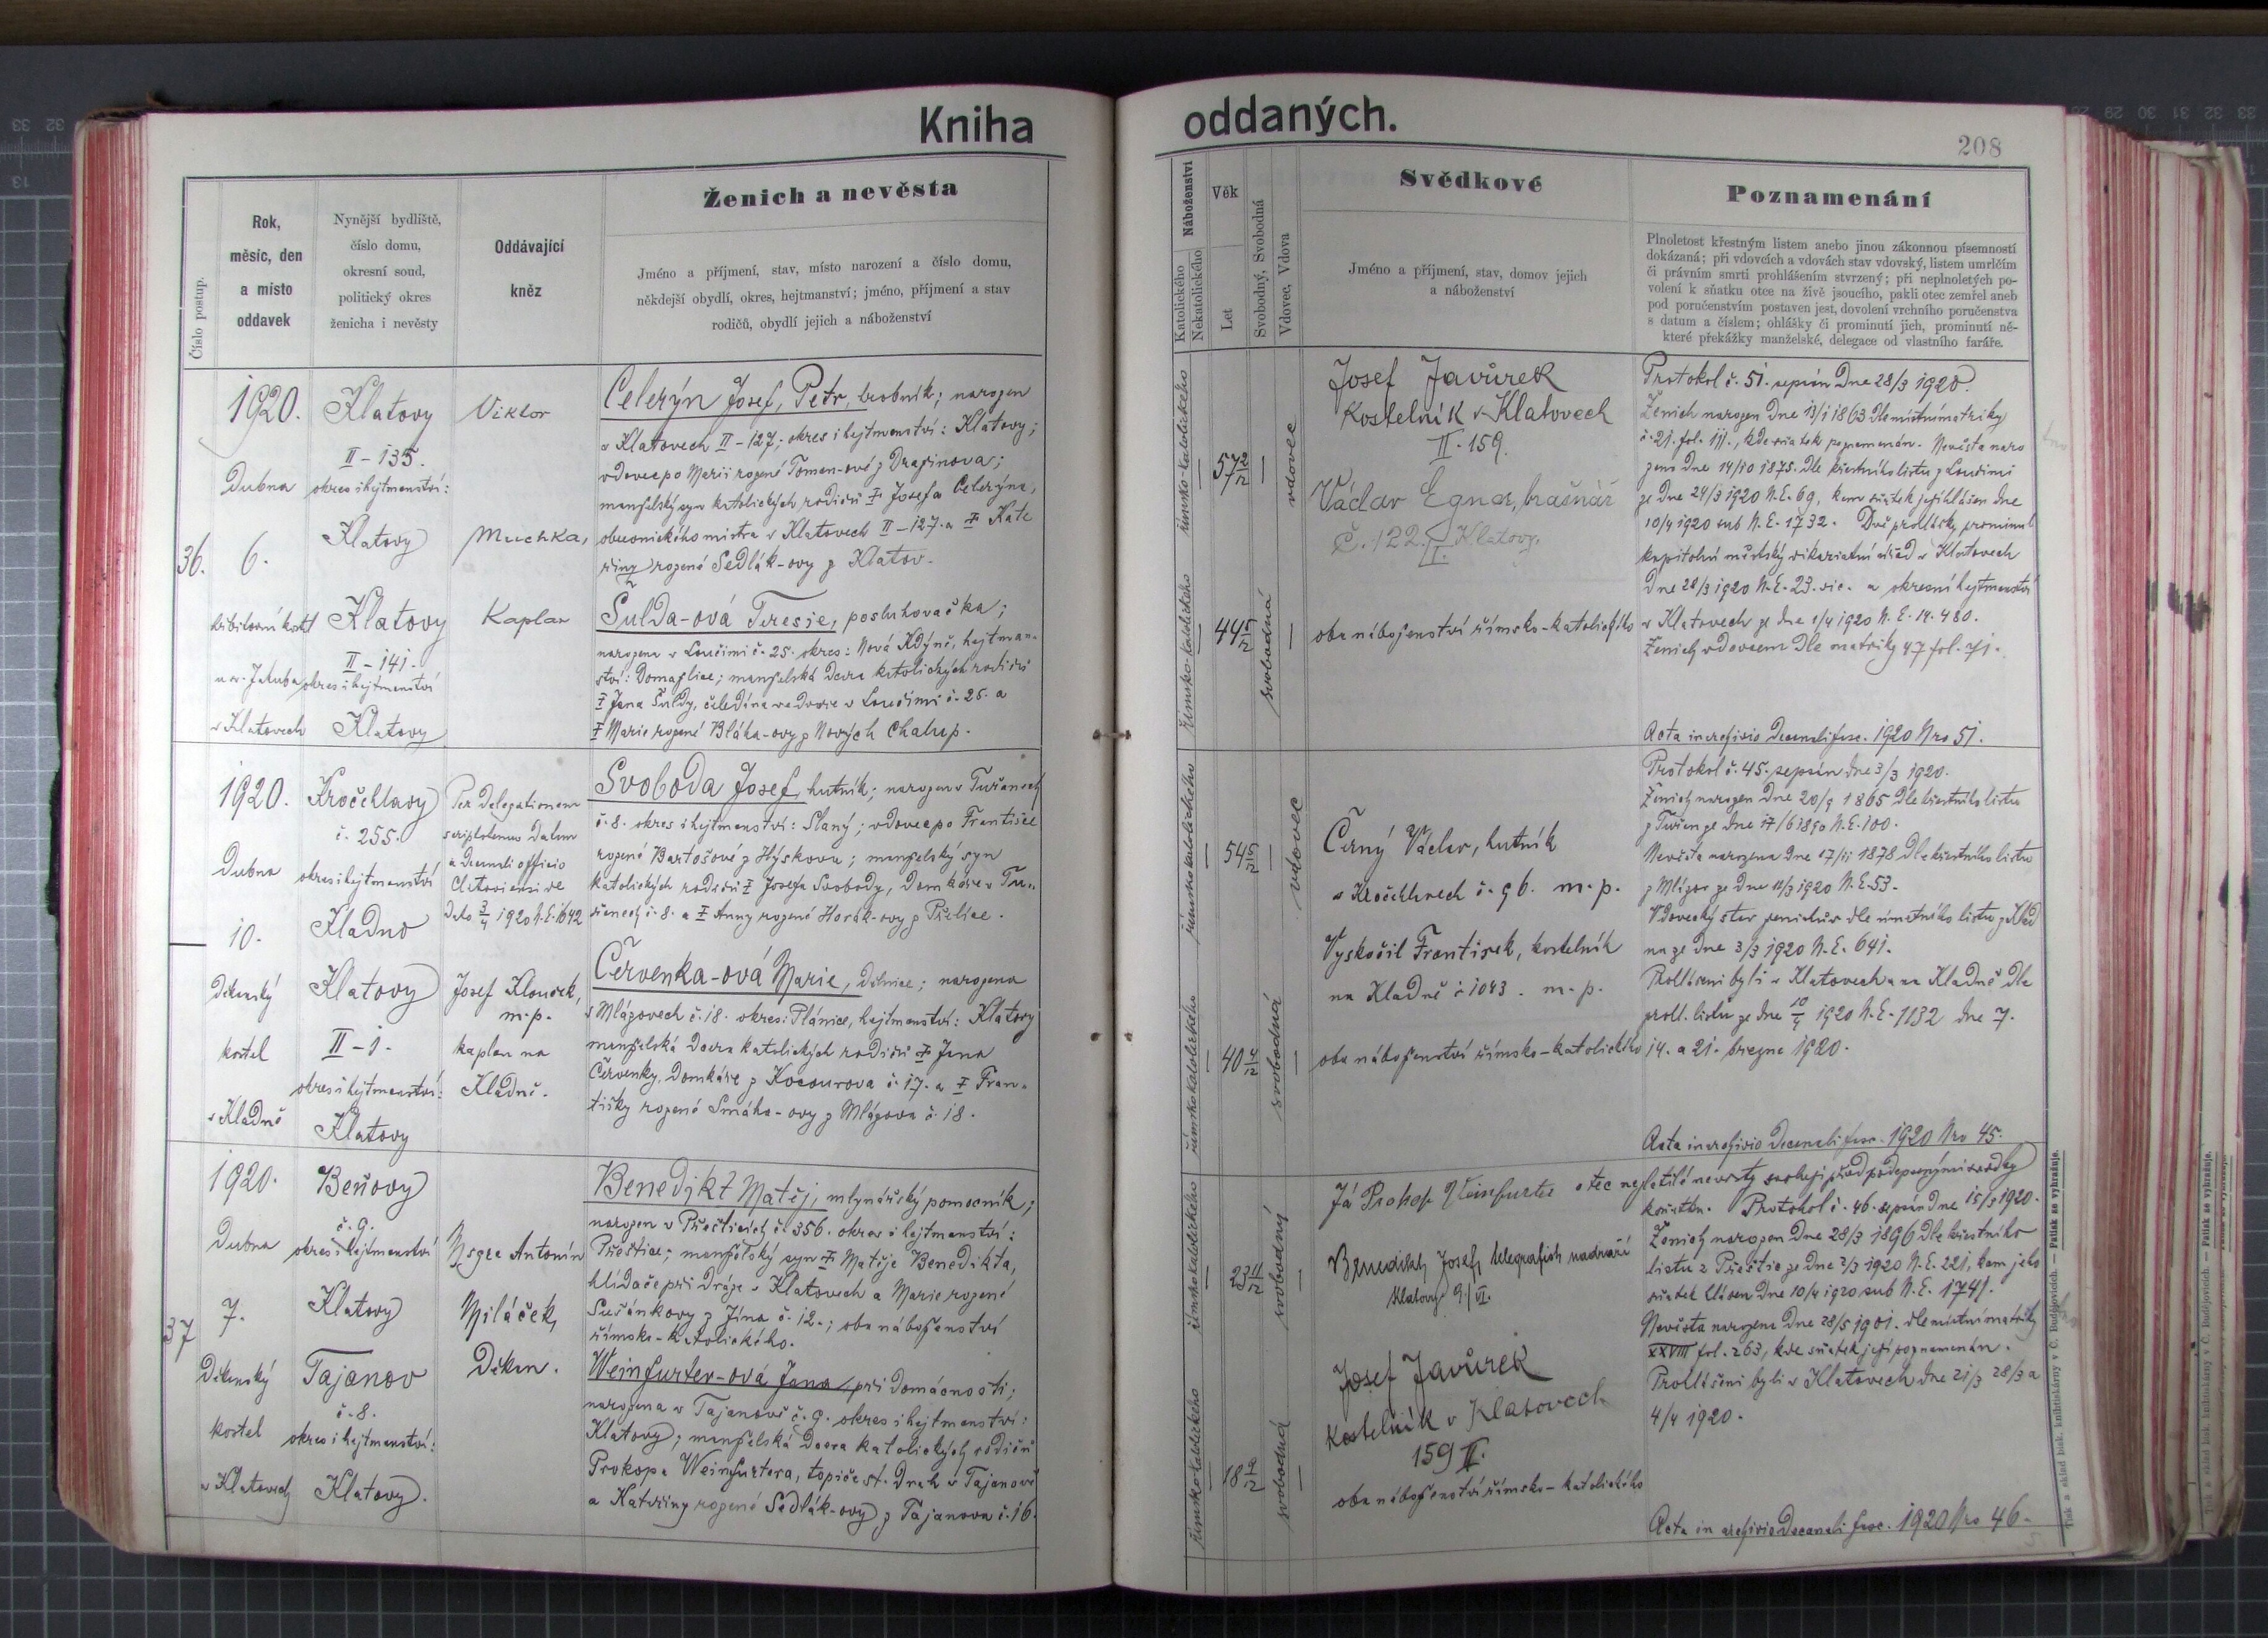 Kniha
oddaných.
208
Číslo postup.
Rok,
měsíc, den
a místo
oddavek
Nynější bydliště,
číslo domu,
okresní soud,
politický okres
ženicha i nevěsty
Oddávající
kněz
Ženich a nevěsta
Jméno a příjmení, stav, místo narození a číslo domu,
někdejší obydlí, okres, hejtmanství; jméno, příjmení a stav
rodičů, obydlí jejich a náboženství
Náboženství
Katolického
Nekatolického
Věk
Let
Svobodný, Svobodná
Vdovec, Vdova
Svědkové
Jméno a příjmení, stav, domov jejich
a náboženství
Poznamenání
Plnoletost křestným listem anebo jinou zákonnou písemností
dokázaná; při vdovcích a vdovách stav vdovský, listem umrlčím
či právním smrti prohlášením stvrzený; při neplnoletých po-
volení k sňatku otce na živě jsoucího, pakli otec zemřel aneb
pod poručenstvím postaven jest, dovolení vrchního poručenstva
s datum a číslem; ohlášky či prominutí jich, prominutí ně-
které překážky manželské, delegace od vlastního faráře.
36.
1920.
Dubna
6.
u sv. Jakuba
v Klatovech
Klatovy
II – 135.
okres i hejtmanství:
Klatovy
Klatovy
II – 141.
okres i hejtmanství
Klatovy
Viktor
Muchka,
Kaplan
Celerýn Josef, Petr, hrobník; narozen
v Klatovech II – 127; okres i hejtmanství: Klatovy;
vdovec po Marii rozené Toman-ové z Dražinova;
manželský syn katolických rodičů † Josefa Celerýna,
obuvnického mistra v Klatovech II – 127. a † Kate
řiny rozené Sedlák-ovy z Klatov.
Šulda-ová Teresie, posluhovačka;
narozena v Loučimi č. 25. okres: Nová Kdýně, hejtman-
ství: Domažlice; manželská dcera katolických rodičů
† Jana Šuldy, čeledína ve dvoře v Loučimi č. 25. a
† Marie rozené Bláha-ovy z Nových Chalup.
římsko-katolického
57 2/12
vdovec
římsko-katolického
44 5/12
svobodná
Josef Javůrek
Kostelník v Klatovech
II. 159.
Václav Egna, brašnář
č. 122. II. Klatovy.
oba náboženství římsko-katolického
Protokol č. 51. sepsán dne 28/3 1920.
Ženich narozen dne 13/1 1863 dle místní matriky
č. 21. fol. 111., kde sňatek poznamenán. Nevěsta naro
zena dne 14/10 1875. dle křestního listu z Loučimi
ze dne 24/3 1920 N. E. 69, kam sňatek její hlášen dne
10/4 1920 sub N. E. 1732. Dvě prohlášky prominul
kapitolní městský vikariátní úřad v Klatovech
dne 28/3 1920 N. E. 23. vic. a okresní hejtmanství
v Klatovech ze dne 1/4 1920 N. E. 14.480.
Ženich vdovcem dle matriky 47 fol. 71.
Acta in archivio Decanali fasc. 1920 Nro 51.
1920.
Dubna
10.
Děkanský
kostel
v Kladně
Kročehlavy
č. 255.
okres i hejtmanství
Kladno
Klatovy
II – 1.
okres i hejtmanství:
Klatovy
Per delegationem
datam
a Decanali officio
de
dato 3/4 1920 N. E. 1642
Josef Klouček,
m. p.
kaplan na
Kladně.
Svoboda Josef, hutník; narozen v Tuřanech
č. 8. okres i hejtmanství: Slaný; vdovec po Františce
rozené Bartošové z Hýskova; manželský syn
katolických rodičů † Josefa Svobody, domkáře v Tu-
řanech č. 8. a † Anny rozené Horák-ovy z Přelíc.
Červenka-ová Marie, dělnice; narozena
v Mlázovech č. 18. okres: Plánice, hejtmanství: Klatovy
manželská dcera katolických rodičů † Jana
Červenky, domkáře z Kocourova č. 17. a † Fran-
tišky rozené Smáha-ovy z Mlázova č. 18.
římskokatolického
54 5/12
vdovec
římskokatolického
40 4/12
svobodná
Černý Václav, hutník
v Kročehlavech č. 96. m. p.
Vyskočil František, kostelník
na Kladně č. 1043. m. p.
oba náboženství římsko-katolického
Protokol č. 45. sepsán dne 3/3 1920.
Ženich narozen dne 20/9 1865 dle křestního listu
z Tuřan ze dne 17/6 1890 N. E. 100.
Nevěsta narozena dne 17/11 1878 dle křestního listu
z Mlázov ze dne 11/3 1920 N. E. 53.
Vdovecký stav ženichův dle úmrtního listu z Klad
na ze dne 3/3 1920 N. E. 641.
Prohlášeni byli v Klatovech a na Kladně dle
prohl. listu ze dne 10/4 1920 N. E. 1132 dne 7.
14. a 21. března 1920.
Acta in archivio Decanali fasc. 1920 Nro 45.
37
1920.
Dubna
7.
Děkanský
kostel
v Klatovech
Beňovy
č. 9.
okres i hejtmanství
Klatovy
Tajanov
č. 8.
okres i hejtmanství:
Klatovy.
Msgre Antonín
Miláček,
Děkan.
Benedikt Matěj, mlynářský pomocník;
narozen v Přešticích č. 356. okres i hejtmanství:
Přeštice; manželský syn † Matěje Benedikta,
hlídače při dráze v Klatovech a Marie rozené
Sušánkovy z Jína č. 12.; oba náboženství
římsko-katolického.
Weinfurter-ová Jana, při domácnosti;
narozena v Tajanově č. 9. okres i hejtmanství:
Klatovy; manželská dcera katolických rodičů
Prokopa Weinfurtera, topiče st. drah v Tajanově
a Kateřiny rozené Sedlák-ovy z Tajanova č. 16.
římskokatolického
23 4/12
svobodný
římsko-katolického
18
svobodná
Já Prokop Weinfurter otec nezletilé nevěsty svoluji před podepsanými svědky
k sňatku. Protokol č. 46. sepsán dne 15/3 1920.
Benedikt, Josef, telegrafich nadzvěř
Klatovy 9./VI.
Josef Javůrek
kostelník v Klatovech
159 II.
oba náboženství římsko-katolického
Ženich narozen dne 28/3 1896 dle křestního
listu z Přeštic ze dne 2/3 1920 N. E. 221, kam jeho
sňatek hlášen dne 10/4 1920 sub N. E. 1741.
Nevěsta narozena dne 28/5 1901. dle místní matriky
XXVIII fol. 263, kde sňatek její poznamenán.
Prohlášeni byli v Klatovech dne 21/3 28/3 a
4/4 1920.
Acta in archivio Decanali fasc. 1920 Nro 46.
Tisk a sklad Brk. knihtiskárny v Č. Budějovicích. — Patisk se vyhražuje.